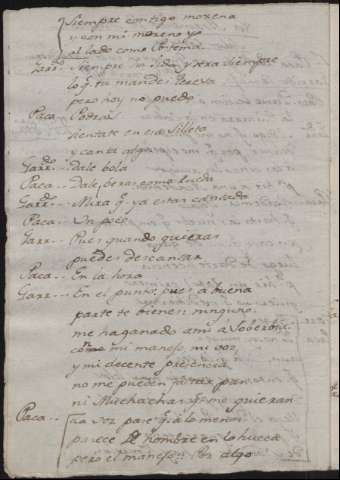 Siempre contigo morena
y con mi moreno yo
al lado como
Garr.do siempre sido y sera siempre
lo q.e tu mandes
pero oy no puedo
Paca Podrás
sientate en esa silleta
y canta algo
Garr.do dale bola
Paca dale
Garr.do Mira q.e ya estas cansado
Paca Un poco
Garr. Pues quando quieras
puedes descansar
Paca En la hora
Garr. En el punto, pues a buena
parte te bienes: ninguno
me ha ganado a mi a soberbio
como mi manejo, mi voz
y mi decente presencia
no me pueden faltar pan
ni Muchachas q.e me quieran
Paca la voz pase q.e a lo menos
parece de hombre en lo hueca
pero el manejo: Por algo